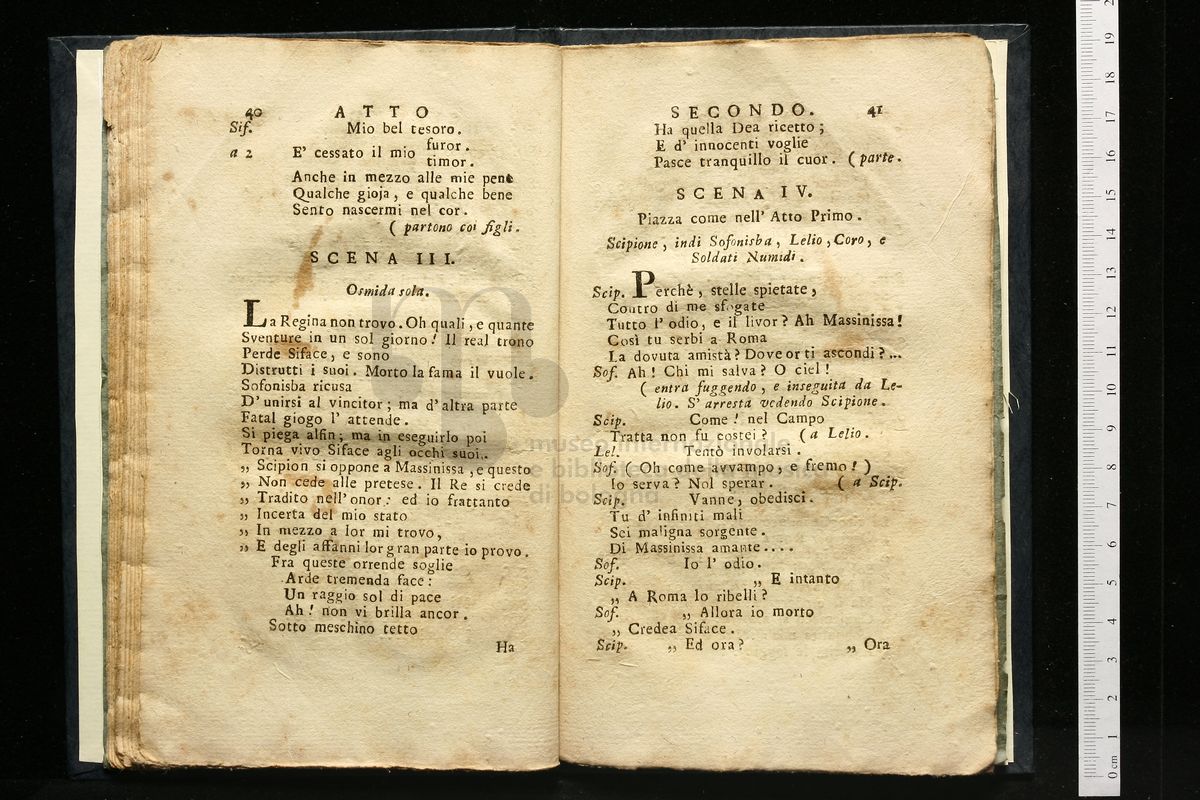 40 ATTO
Sif. Mio bel tesoro.
a 2 E' cessato il mio furor.
timor.
Anche in mezzo alle mie pene
Qualche gioja, e qualche bene
Sento nascermi nel cor.
( partono coi figli.
SCENA III.
Osmida sola.
La Regina non trovo. Oh quali, e quante
Sventure in un sol giorno! Il real trono
Perde Siface, e sono
Distrutti i suoi. Morto la fama il vuole.
Sofonisba ricusa
D'unirsi al vincitor; ma d'altra parte
Fatal giogo l'attende.
Si piega alfin; ma in eseguirlo poi
Torna vivo Siface agli occhi suoi.
„ Scipion si oppone a Massinissa, e questo
„ Non cede alle pretese. Il Re si crede
„ Tradito nell'onor: ed io frattanto
„ Incerta del mio stato
„ In mezzo a lor mi trovo,
„ E degli affanni lor gran parte io provo.
Fra queste orrende soglie
Arde tremenda face:
Un raggio sol di pace
Ah! non vi brilla ancor.
Sotto meschino tetto
Ha
SECONDO. 41
Ha quella Dea ricetto;
E d'innocenti voglie
Pasce tranquillo il cuor. ( parte.
SCENA IV.
Piazza come nell'Atto Primo.
Scipione, indi Sofonisba, Lelio, Coro, e
Soldati Numidi.
Scip. Perchè, stelle spietate,
Contro di me sfogate
Tutto l'odio, e il livor? Ah Massinissa!
Così tu serbi a Roma
La dovuta amistà? Dove or ti ascondi?...
Sof. Ah! Chi mi salva? O ciel!
( entra fuggendo, e inseguita da Le-
lio. S'arresta vedendo Scipione.
Scip. Come! nel Campo
Tratta non fu costei? ( a Lelio.
Lel. Tentò involarsi.
Sof. ( Oh come avvampo, e fremo! )
Io serva? Nol sperar. ( a Scip.
Scip. Vanne, obedisci.
Tu d'infiniti mali
Sei maligna sorgente.
Di Massinissa amante....
Sof. Io l'odio.
Scip. „ E intanto
„ A Roma lo ribelli?
Sof. „ Allora io morto
„ Credea Siface.
Scip. „ Ed ora? „ Ora
museo internazionale
e biblioteca della musica
di bologna
0 cm 1 2 3 4 5 6 7 8 9 10 11 12 13 14 15 16 17 18 19